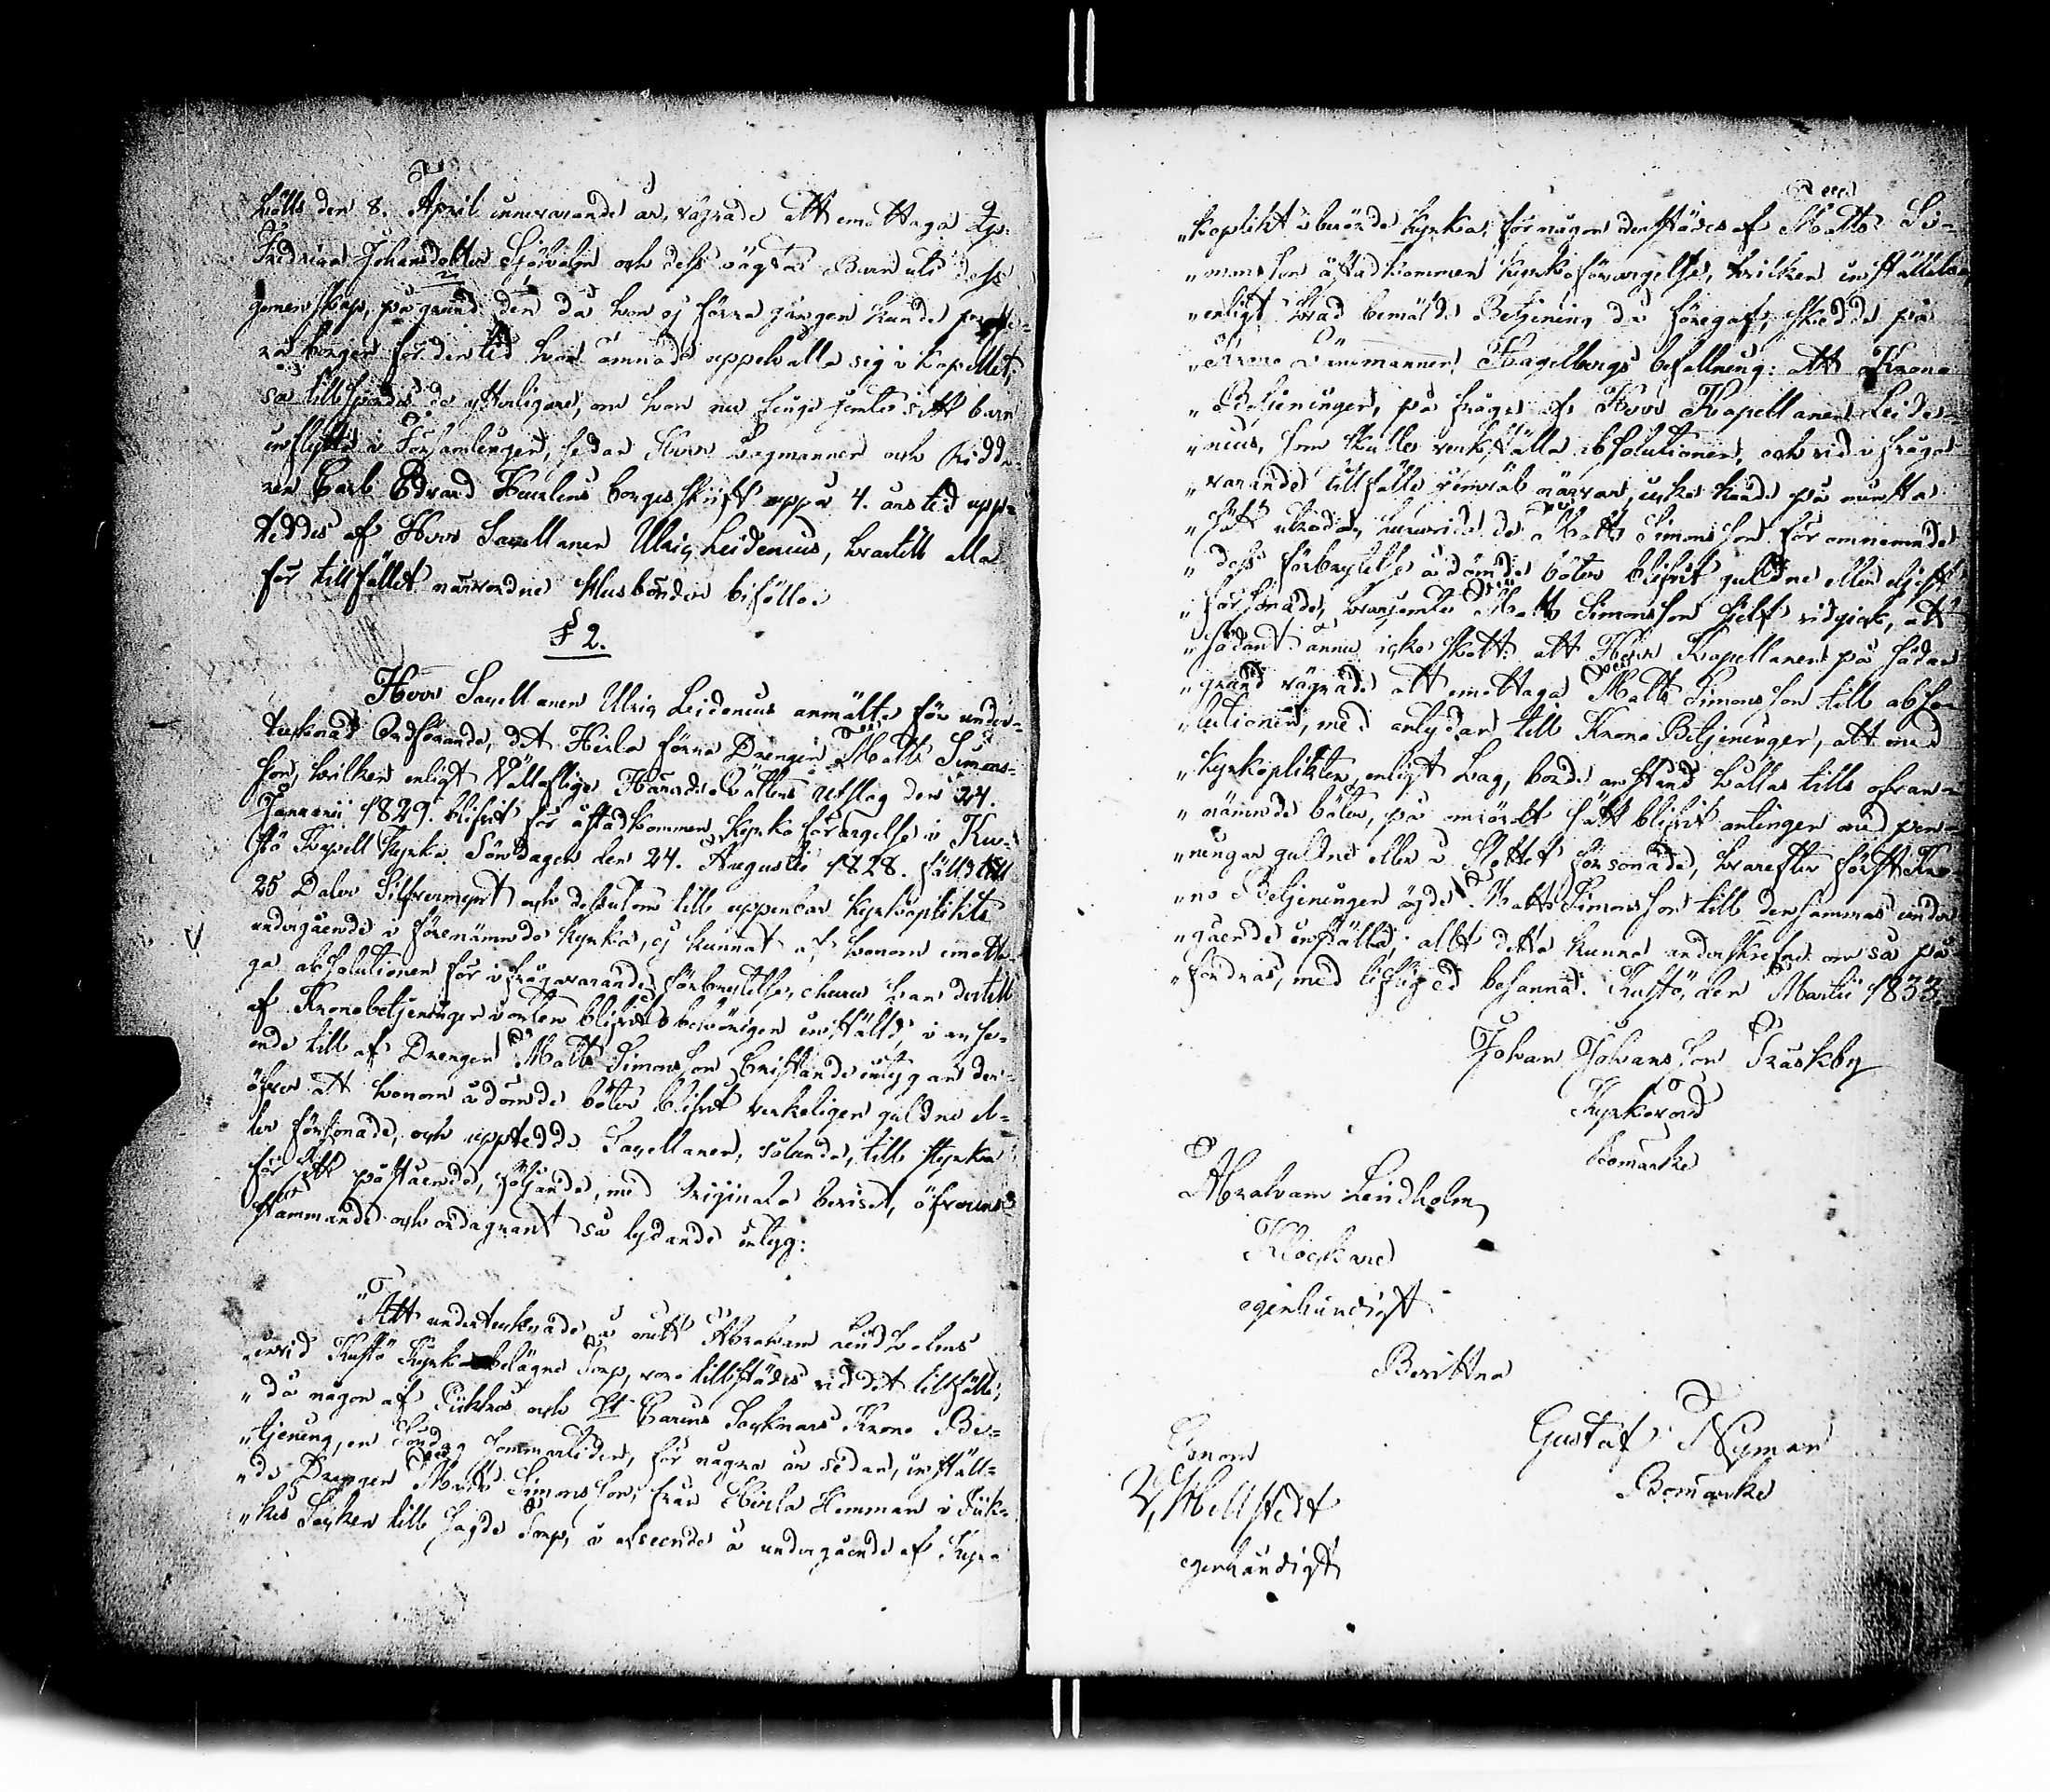 hölls den 8. April innevarande år, vägrade att emottaga Pig.
Fredrica Johansdotter Sjövalin och dess oägta Barn uti dess
gemenskap, på grund den då hon ej förra gången kunde præste-
ra borgen för den tid hon ämnade uppehålla sig i Kapellet;
så tillspordes de ytterligare, om hon nu finge jemte sitt barn
inflytta i Församlingen, sedan Herr Lagmannen och Ridda-
ren Carl Edvard Heurlins borgesskrift uppå 4. års tid upp-
teddes af Herr Sacellanen Ulric Leidenius, hvartill alla
för tillfället närvordne Husbönder biföllo.
§ 2.
Herr Sacellanen Ulric Leidenius anmälte för under-
teknad Ordförande, det Hirla förna Drengen Matts Simons-
son, hvilken enligt Vällaflige Härads Rättens Utslag den 24.
Januarii 1829. blifvit för åstadkommen Kyrko förargelse i Ku-
stö Kapell Kyrka Söndagen den 24. Augusti 1828. fälld till
25 Daler Silfvermynt och dessutom till uppenbar Kyrkoplikts
undergående i förenämnde Kyrka, ej kunnat af honom emotta-
ga absolutionen för ifrågavarande förbrytelse, ehuru han dertill
af Kronobetjeningen vorten blifvit behörigen inställd, i anse-
ende till af Drengen Matts Simonsson bristande intyg an der-
öfver att honom ådömde böter blifvit verkeligen guldne el-
ler försonade, och uppteddes Sacellanen, sålunde, till styrka
för sitt påstående, följande, med Originala beviset, öfverens-
stämmande och ordagrant så lydande intyg:
"Att undertecknade i mitt Abraham Lindholms
"invid Kustö Kyrka belägne Torp, voro tillstädes vid det tillfälle,
"då någon af Piikkis och St Karins Socknars Krono Be-
"tjening, en Söndag sommartiden, för några år sedan, inställ-
"de Drengen Matts Simonsson, från Hirla Hemman i Piik-
"kis Socken till sagde Torp, i afseende å undergående af Kyr-
"koplikt i berörde Kyrka, för någon derstädes af Matts Si-
"monsson åstadkommen Kyrkoförargelse, hvilken inställelse,
"enligt hvad bemälde Betjening då föregaf, skedde på
"Krono Länsmannen Hagelbergs befallning: att Krono
"Betjeningen, på fråga af Herr Kapellanen Leide-
"nius, som skulle verkställa absolutionen, och vid ifråga
"varande tillfälle jemväl närvar, icke kunde på minsta
"sätt utreda, huruvida de Matts Simonsson för omnämnde
"dess förbrytelse ådömde böter blifvit guldne eller eljest
"försonade, hvarjemte Matts Simonsson sjelf vidgick, att
"sådant ännu icke skett: att Herr Kapellanen på sådan
"grund vägrade att emottaga Matts Simonsson till abso-
"lutionen, med antydan till Krono Betjeningen, att med
"Kyrkoplikten, enligt Lag, borde anstånd hållas tills ofvan-
"nämnde böter, på omrördt sätt blifvit antingen med pen-
"ningar guldne eller i Slottet försonade, hvarefter först Kro-
"no Betjeningen ägde Matts Simonsson till densammas under
"gående inställa; allt detta kunna underskrefne om så på
"fordras, med liflig ed besanna. Kustö, den Martii 1833.
Johan Johansson Träskby
Kyrkovärd
Bomärke
Abraham Lindholm
Klockare
egenhändigt
Bevittna
Genom
Gustaf Nyman
Bomärke
Hellstedt
egenhändigt